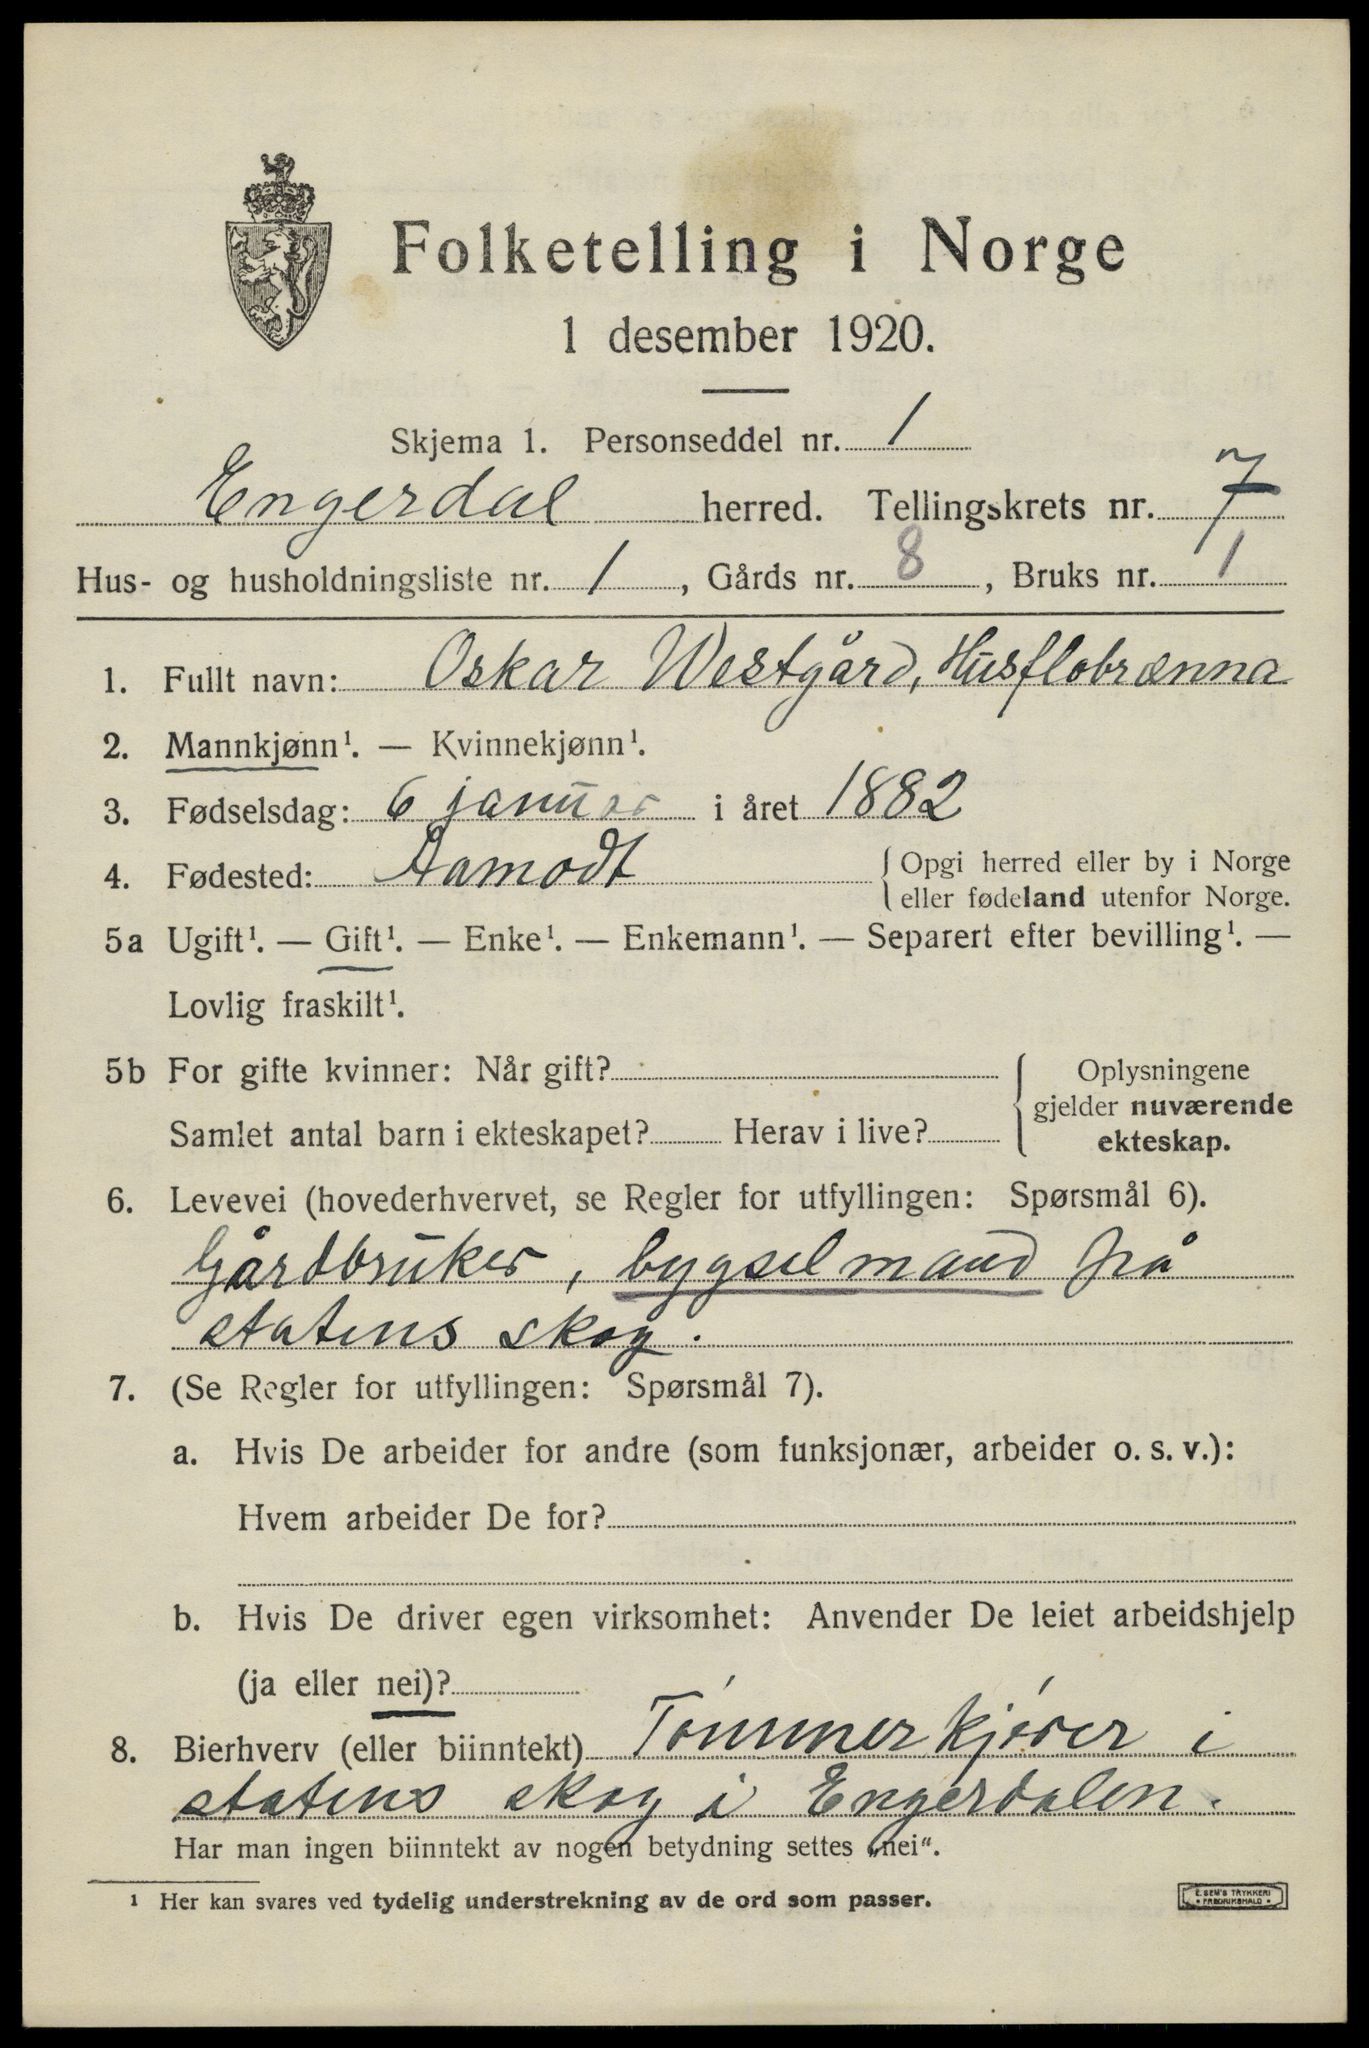 Folketelling i Norge
1 desember 1920.
Skjema 1. Personseddel nr. 1
Engerdal herred. Tellingskrets nr. 7
Hus- og husholdningsliste nr. 1, Gårds nr. 8, Bruks nr. 1
1. Fullt navn: Oskar Westgård, Husflobrænna
2. Mannkjønn¹. — Kvinnekjønn¹.
3. Fødselsdag: 6 januar i året 1882
4. Fødested: Aamodt { Opgi herred eller by i Norge
eller fødeland utenfor Norge.
5a Ugift¹. — Gift¹. — Enke¹. — Enkemann¹. — Separert efter bevilling¹. —
Lovlig fraskilt¹.
5b For gifte kvinner: Når gift? { Oplysningene
gjelder nuværende
Samlet antal barn i ekteskapet? Herav i live? ekteskap.
6. Levevei (hovederhvervet, se Regler for utfyllingen: Spørsmål 6).
Gårdbruker, bygselmand på
statens skog.
7. (Se Regler for utfyllingen: Spørsmål 7).
a. Hvis De arbeider for andre (som funksjonær, arbeider o. s. v.):
Hvem arbeider De for?
b. Hvis De driver egen virksomhet: Anvender De leiet arbeidshjelp
(ja eller nei)?
8. Bierhverv (eller biinntekt) Tømmerkjører i
statens skog i Engerdalen.
Har man ingen biinntekt av nogen betydning settes „nei“.
¹ Her kan svares ved tydelig understrekning av de ord som passer.
E. SEM'S TRYKKERI
• FREDRIKSHALD •